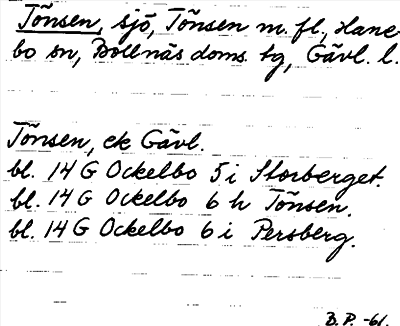 Tõnsen, sjö, Tõnsen m. fl., Hane
bo sn, Bollnäs doms. tg, Gävl. l.
Tõnsen, ek Gävl.
bl. 14 G Ockelbo 5 i Storberget.
bl. 14 G Ockelbo 6 h Tõnsen.
bl. 14 G Ockelbo 6 i Persberg.
B. P. -61.